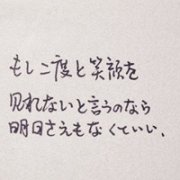 もし二度と笑顔を
見れないと言うのなら
明日さえもなくていい.